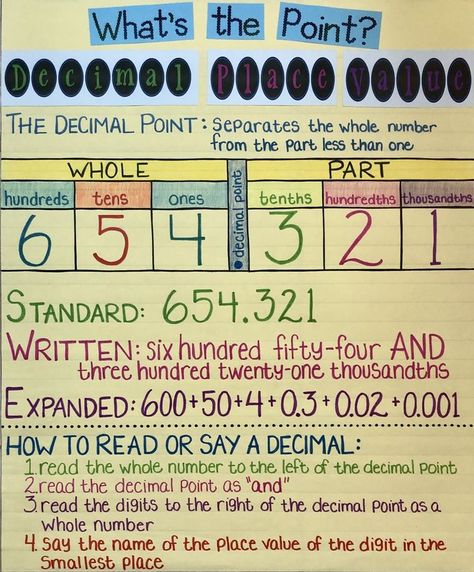 What's the Point?
Decimal Place Value
THE DECIMAL POINT: separates the whole number
from the part less than one
WHOLE PART
hundreds tens ones decimal point tenths hundredths thousandths
6 5 4 3 2 1
STANDARD: 654.321
WRITTEN: six hundred fifty-four AND
three hundred twenty-one thousandths
EXPANDED: 600+50+4+0.3+0.02+0.001
HOW TO READ OR SAY A DECIMAL:
1. read the whole number to the left of the decimal point
2. read the decimal point as "and"
3. read the digits to the right of the decimal point as a
whole number
4. say the name of the place value of the digit in the
smallest place